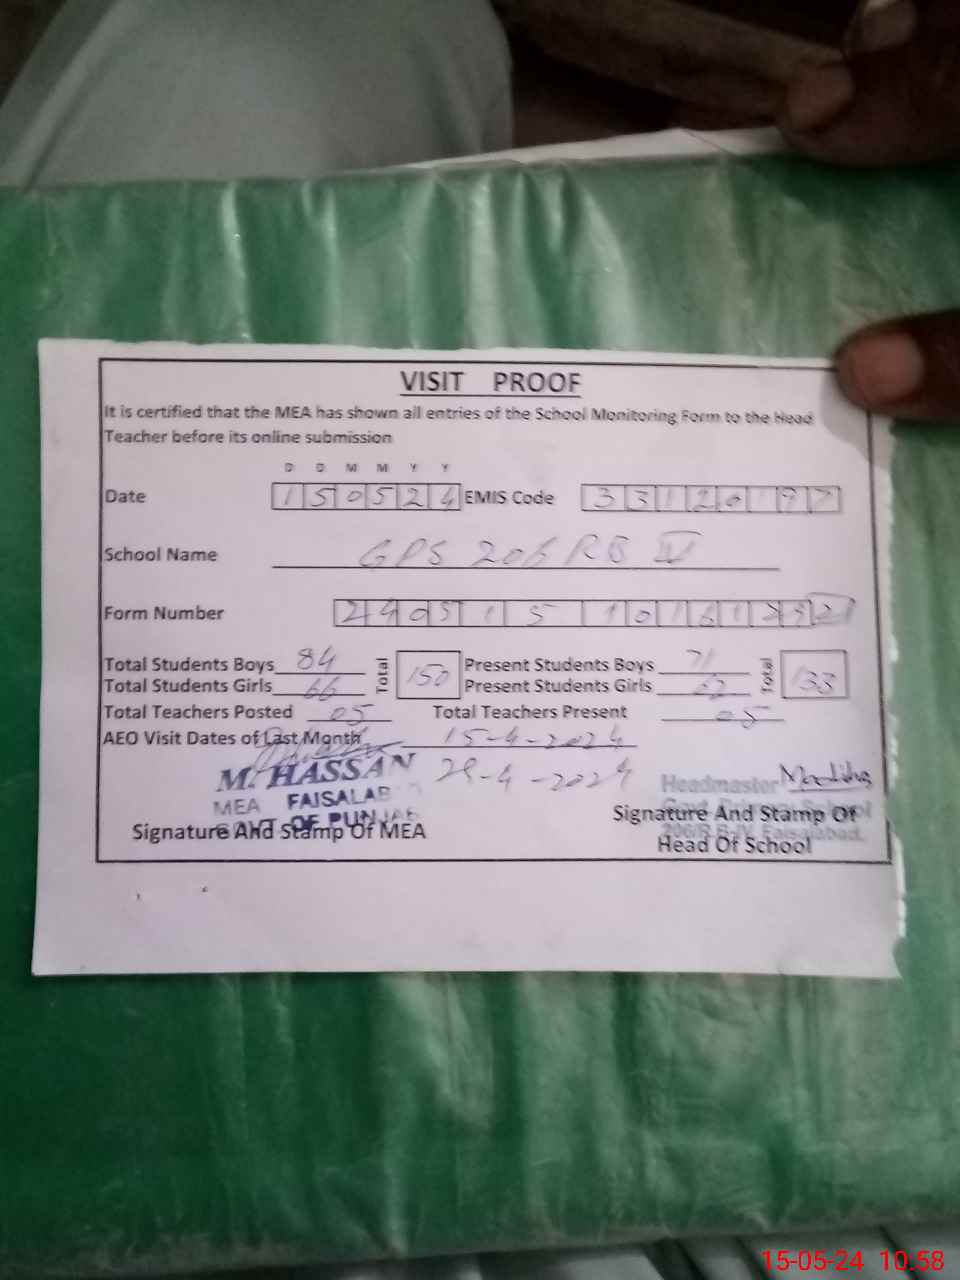 VISIT PROOF
It is certified that the MEA has shown all entries of the School Monitoring Form to the Head
Teacher before its online submission
D D M M Y Y
Date 150524 EMIS Code 33120197
School Name GPS 206 RB IV
Form Number
Total Students Boys 84 Total 150 Present Students Boys 71 Total 133
Total Students Girls 66 Present Students Girls 62
Total Teachers Posted 05 Total Teachers Present 05
AEO Visit Dates of Last Month 15-4-2024
29-4-2024
M. HASSAN
MEA FAISALABAD
GOVT OF PUNJAB
Signature And Stamp Of MEA
Headmaster Madiha
Govt. Primary School
206/R.B-IV, Faisalabad.
Signature And Stamp Of
Head Of School
15-05-24 10:58